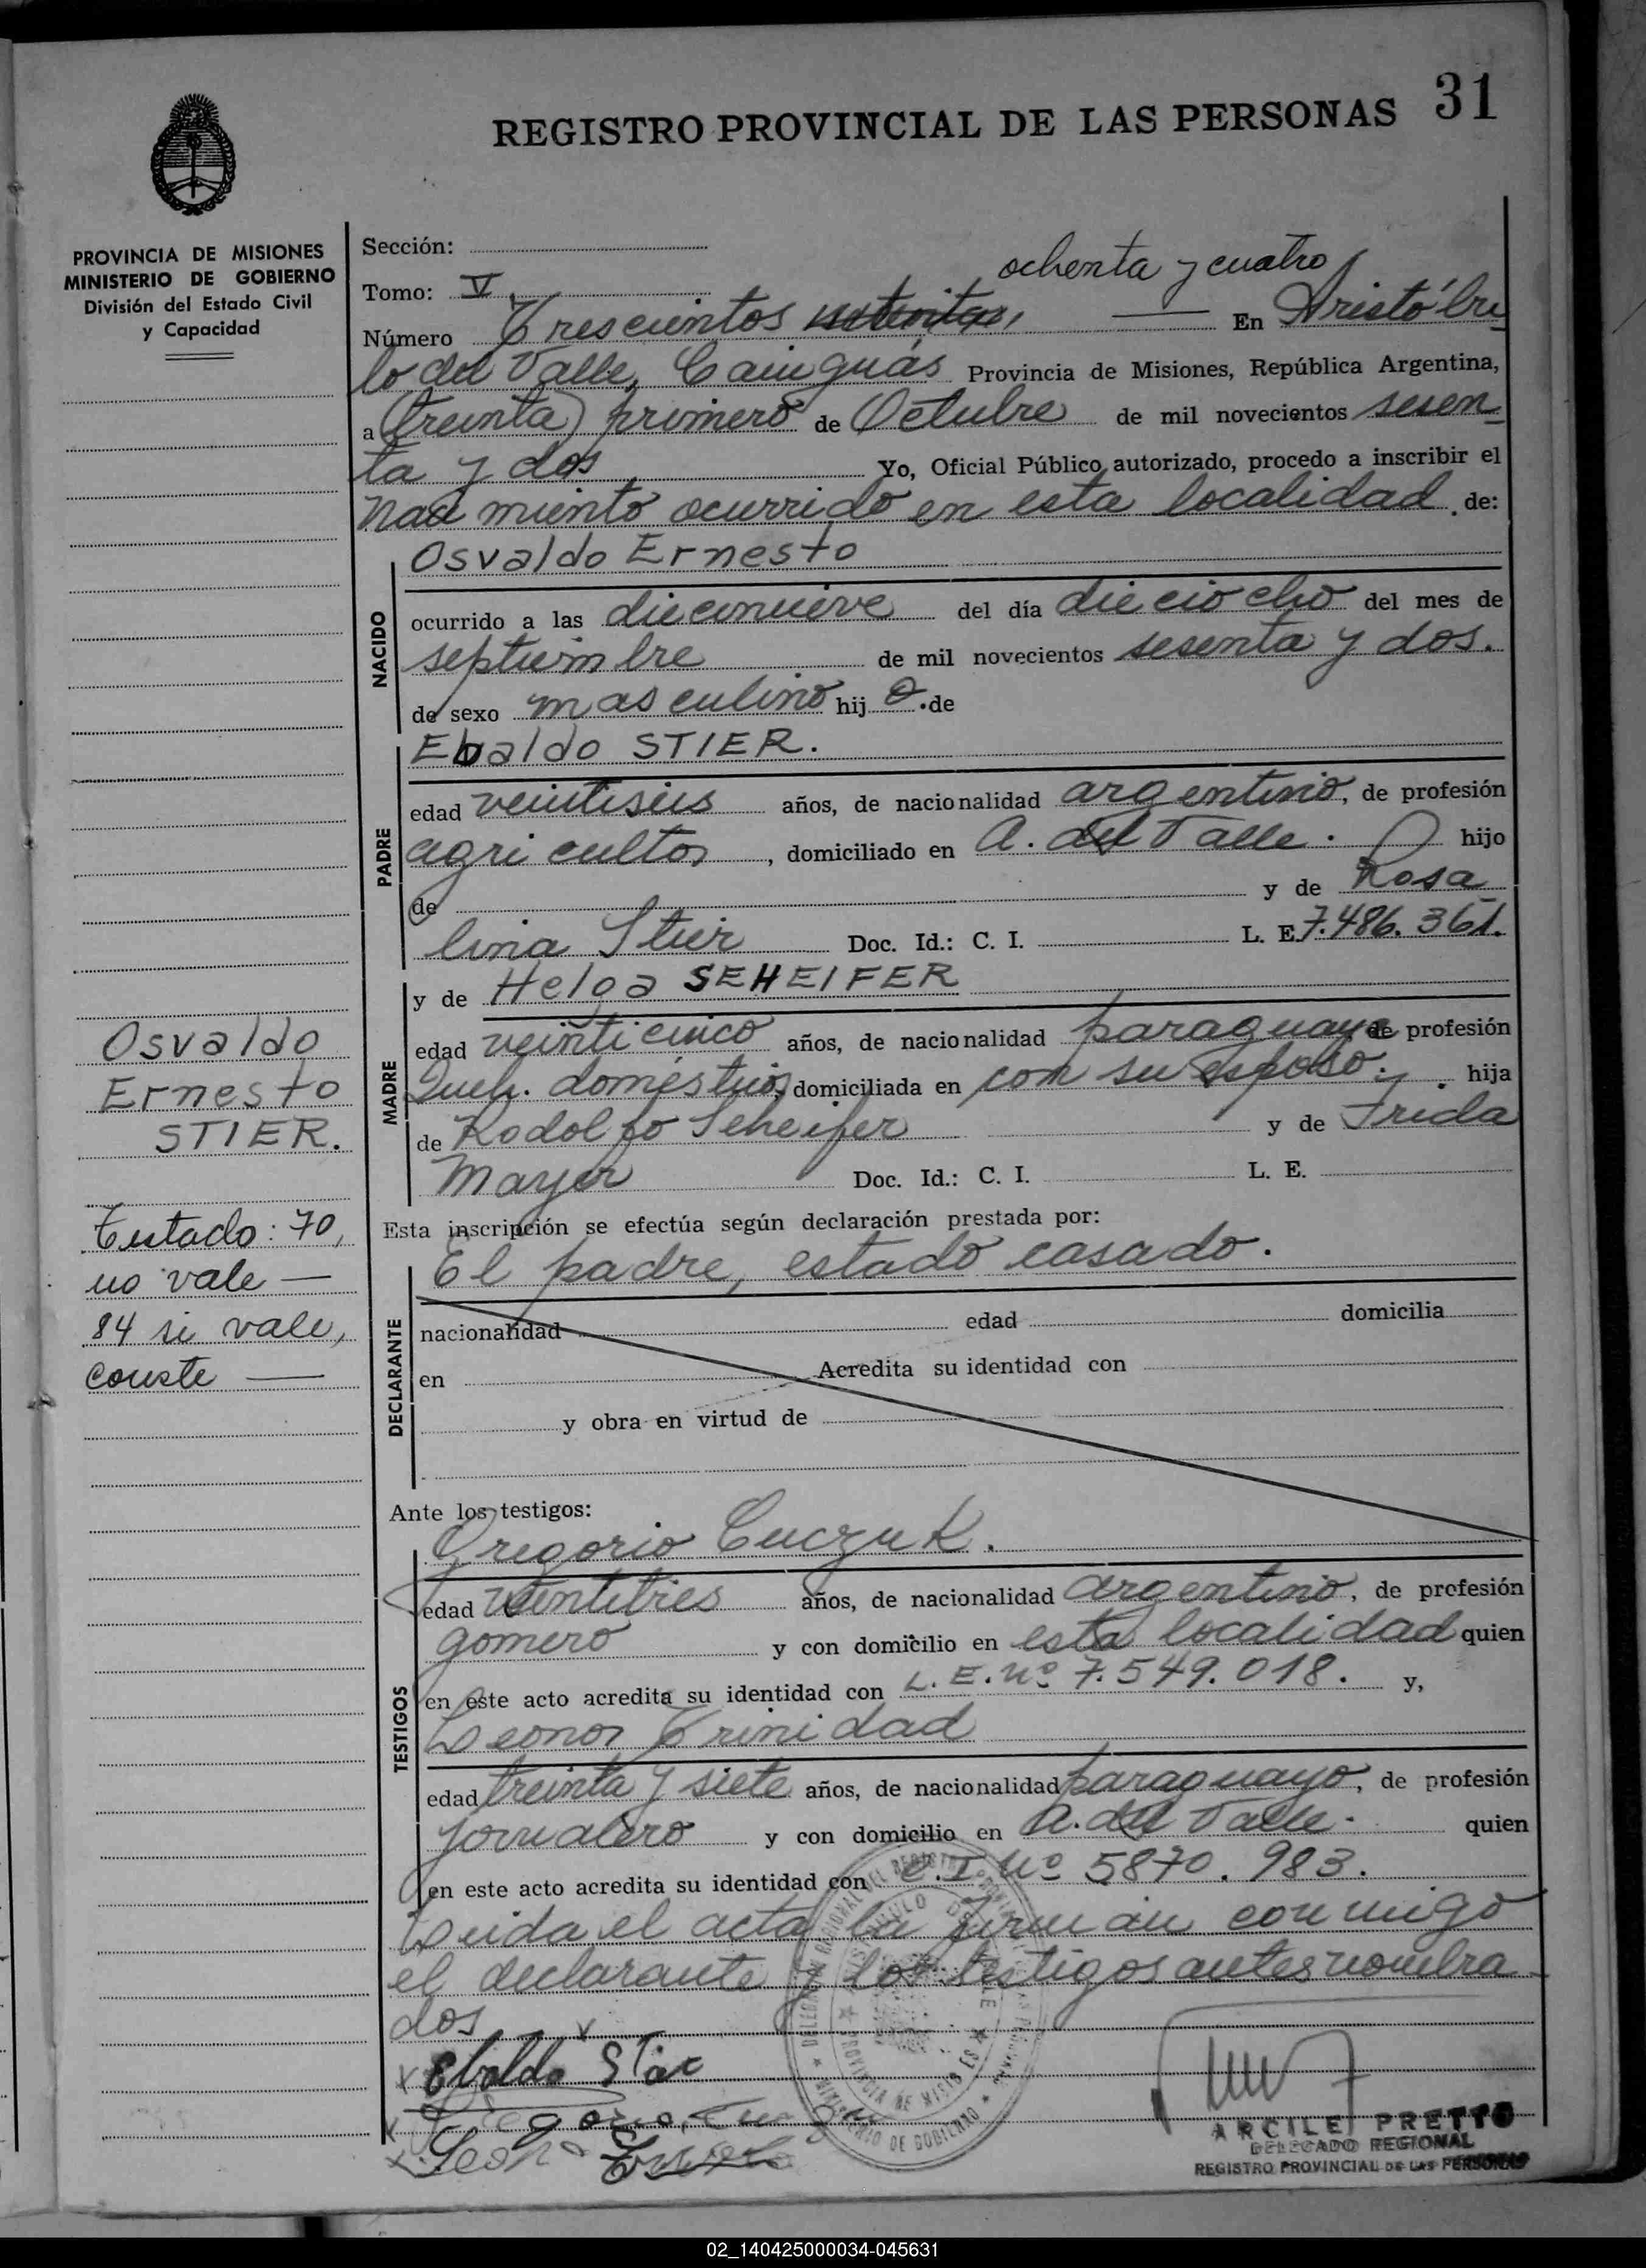 31
REGISTRO PROVINCIAL DE LAS PERSONAS
PROVINCIA DE MISIONES
MINISTERIO DE GOBIERNO
División del Estado Civil
y Capacidad
Osvaldo
Ernesto
STIER.
Testado: 70,
no vale —
84 si vale,
conste —
Sección:
Tomo: V
ochenta y cuatro
Número Trescientos setenta, — En Aristóbu
lo del Valle, Cainguás Provincia de Misiones, República Argentina,
a (treinta) primero de Octubre de mil novecientos sesen
ta y dos Yo, Oficial Público autorizado, procedo a inscribir el
naci miento ocurrido en esta localidad. de:
NACIDO
Osvaldo Ernesto
ocurrido a las diecinueve del día dieciocho del mes de
septiembre de mil novecientos sesenta y dos.
de sexo masculino hij o. de
PADRE
Ebaldo STIER.
edad veintiseis años, de nacionalidad argentino, de profesión
agricultor, domiciliado en A. del Valle. hijo
de y de Rosa
lina Stier Doc. Id.: C. I. L. E. 7.486.361.
MADRE
y de Helga SEHEIFER
edad veinticinco años, de nacionalidad paraguaya de profesión
Queh. domésticos, domiciliada en con su esposo. hija
de Rodolfo Seheifer y de Frida
Mayer Doc. Id.: C. I. L. E.
Esta inscripción se efectúa según declaración prestada por:
DECLARANTE
El padre, estado casado.
nacionalidad edad domicilia
en Acredita su identidad con
y obra en virtud de
Ante los testigos:
TESTIGOS
Gregorio Cuczuk.
edad veintitres años, de nacionalidad argentino, de profesión
gomero y con domicilio en esta localidad quien
en este acto acredita su identidad con L. E. Nº 7.549.018. y,
Leonor Trinidad
edad treinta y siete años, de nacionalidad paraguayo, de profesión
jornalero y con domicilio en A. del Valle. quien
en este acto acredita su identidad con C. I Nº 5870.983.
Leida el acta la firman conmigo
el declarante y los testigos antes nombra
dos
Ebaldo Stier
ARCILEI PRETTO
DELEGADO REGIONAL
REGISTRO PROVINCIAL DE LAS PERSONAS
02_140425000034-045631